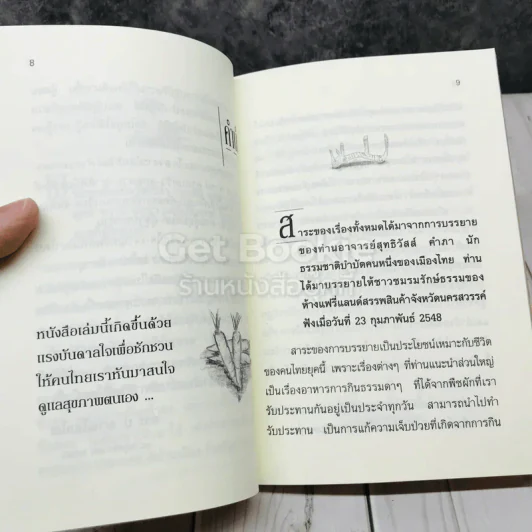 8
หนังสือเล่มนี้เกิดขึ้นด้วย
แรงบันดาลใจเพื่อชักชวน
ให้คนไทยเราหันมาสนใจ
ดูแลสุขภาพตนเอง ...
9
สาระของเรื่องทั้งหมดได้มาจากการบรรยาย
ของท่านอาจารย์สุทธิวัสส์ คำภา นัก
ธรรมชาติบำบัดคนหนึ่งของเมืองไทย ท่าน
ได้มาบรรยายให้ชาวชมรมรักษ์ธรรมของ
ห้างแฟรี่แลนด์สรรพสินค้าจังหวัดนครสวรรค์
ฟังเมื่อวันที่ 23 กุมภาพันธ์ 2548
สาระของการบรรยายเป็นประโยชน์เหมาะกับชีวิต
ของคนไทยยุคนี้ เพราะเรื่องต่างๆ ที่ท่านแนะนำส่วนใหญ่
เป็นเรื่องอาหารการกินธรรมดาๆ ที่ได้จากพืชผักที่เรา
รับประทานกันอยู่เป็นประจำทุกวัน สามารถนำไปทำ
รับประทาน เป็นการแก้ความเจ็บป่วยที่เกิดจากการกิน
Get Bookie
ร้านหนังสือ